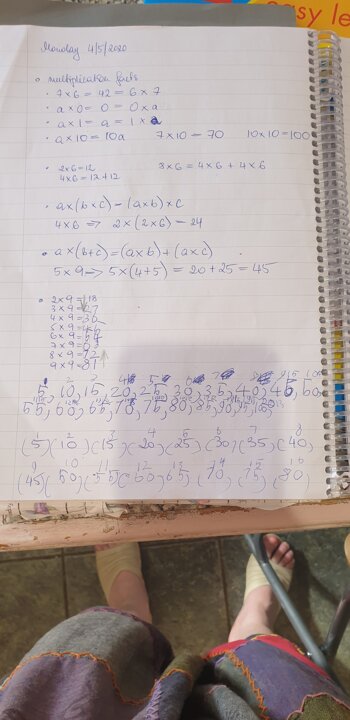 easy le
Monday 4/5/2020
multiplication facts
7 x 6 = 42 = 6 x 7
a x 0 = 0 = 0 x a
a x 1 = a = 1 x a
a x 10 = 10a 7 x 10 = 70 10 x 10 = 100
2 x 6 = 12 8 x 6 = 4 x 6 + 4 x 6
4 x 6 = 12 + 12
a x (b x c) = (a x b) x c
4 x 6 ⇒ 2 x (2 x 6) = 24
a x (b + c) = (a x b) + (a x c)
5 x 9 ⇒ 5 x (4 + 5) = 20 + 25 = 45
2 x 9 = 18
3 x 9 = 27
4 x 9 = 36
5 x 9 = 45
6 x 9 = 54
7 x 9 = 63
8 x 9 = 72
9 x 9 = 81
5, 10, 15, 20, 25, 30, 35, 40, 45, 50,
55, 60, 65, 70, 75, 80, 85, 90, 95, 100
6 7 8
(5)(10)(15)(20)(25)(30)(35)(40,
9 10 11 12
(45)(50)(55)(60)(65)(70)(75)(80)